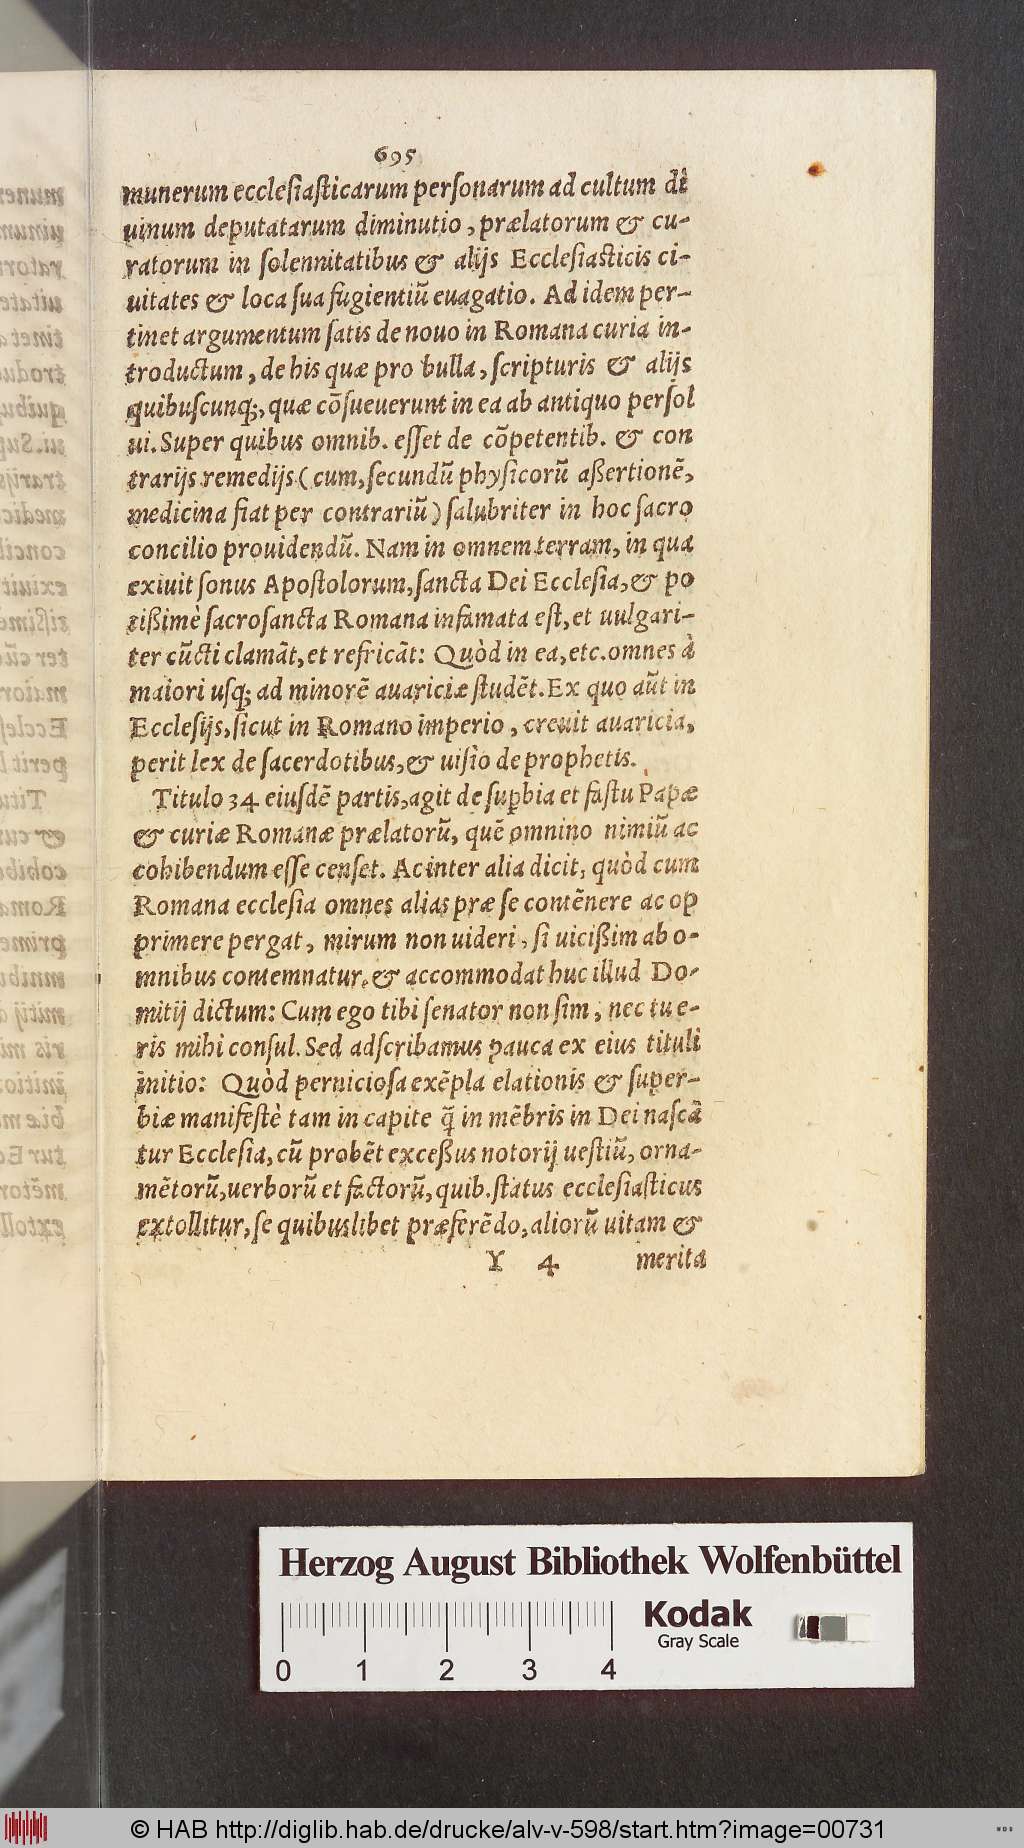 695
munerum ecclesiasticarum personarum ad cultum di
uinum deputatarum diminutio, prælatorum & cu-
ratorum in solennitatibus & alijs Ecclesiasticis ci-
uitates & loca sua fugientiū euagatio. Ad idem per-
tinet argumentum satis de nouo in Romana curia in-
troductum, de his quæ pro bulla, scripturis & alijs
quibuscunq;, quæ cōsueuerunt in ea ab antiquo persol
ui. Super quibus omnib. esset de cōpetentib. & con
trarijs remedijs (cum, secundū physicorū aßertionē,
medicina fiat per contrariū) salubriter in hoc sacro
concilio prouidendū. Nam in omnem terram, in qua
exiuit sonus Apostolorum, sancta Dei Ecclesia, & po
tißimè sacrosancta Romana infamata est, et uulgari-
ter cūcti clamāt, et refricāt: Quòd in ea, etc. omnes à
maiori usq; ad minorē auariciæ studēt. Ex quo aūt in
Ecclesijs, sicut in Romano imperio, creuit auaricia,
perit lex de sacerdotibus, & uisio de prophetis.
Titulo 34 eiusdē partis, agit de supbia et fastu Papæ
& curiæ Romanæ prælatorū, quē omnino nimiū ac
cohibendum esse censet. Ac inter alia dicit, quòd cum
Romana ecclesia omnes alias præ se contēnere ac op
primere pergat, mirum non uideri, si uicißim ab o-
mnibus contemnatur, & accommodat huc illud Do-
mitij dictum: Cum ego tibi senator non sim, nec tu e-
ris mihi consul. Sed adscribamus pauca ex eius tituli
initio: Quòd perniciosa exēpla elationis & super-
biæ manifestè tam in capite q̄ in mēbris in Dei nascā
tur Ecclesia, cū probēt exceßus notorij uestiū, orna-
mētorū, uerborū et factorū, quib. status ecclesiasticus
extollitur, se quibuslibet præferēdo, aliorū uitam &
Y 4 merita
Herzog August Bibliothek Wolfenbüttel
Kodak
Gray Scale
0 1 2 3 4
© HAB http://diglib.hab.de/drucke/alv-v-598/start.htm?image=00731